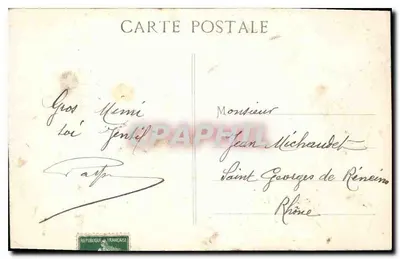 CARTE POSTALE
Gros Mimi
toi Gentil
Monsieur
Jean Michaudet
Saint Georges de Réneins
Rhône
REPUBLIQUE FRANÇAISE